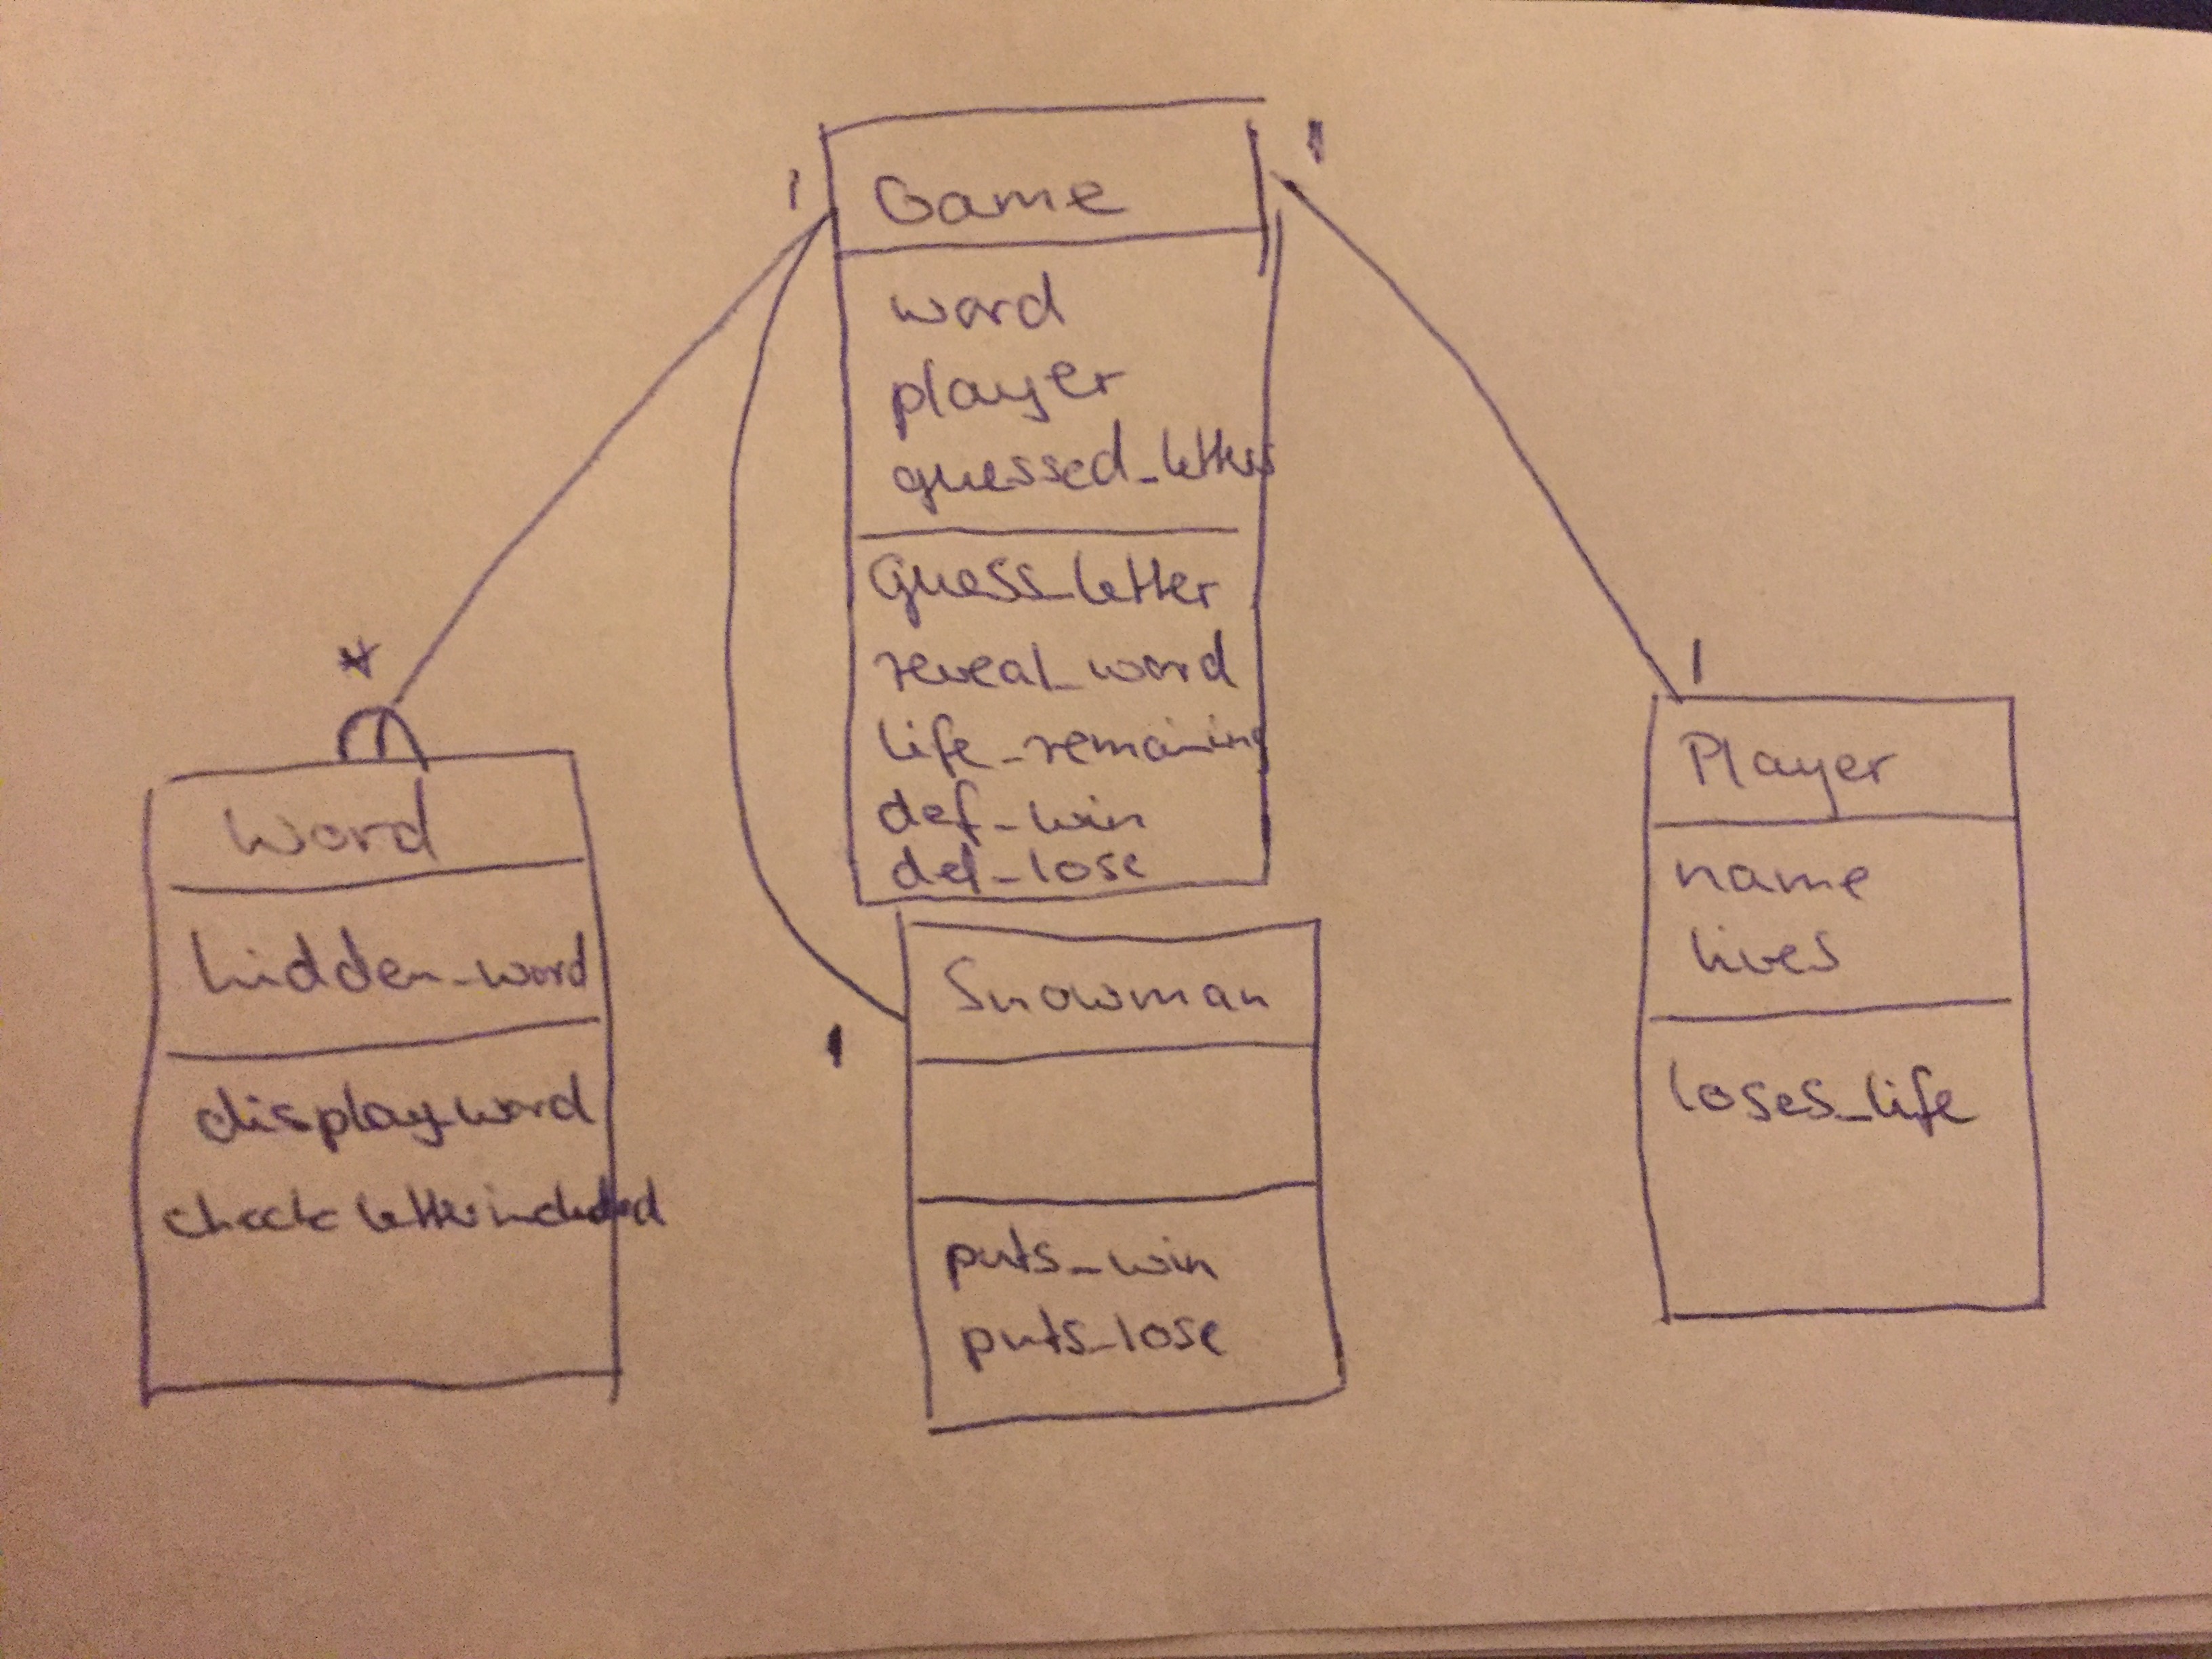 1
1
Game
word
player
guessed_letters
guess_letter
reveal_word
life_remaining
def_win
def_lose
*
Word
hidden_word
display_word
check letter included
1
Snowman
puts_win
puts_lose
1
Player
name
lives
loses_life